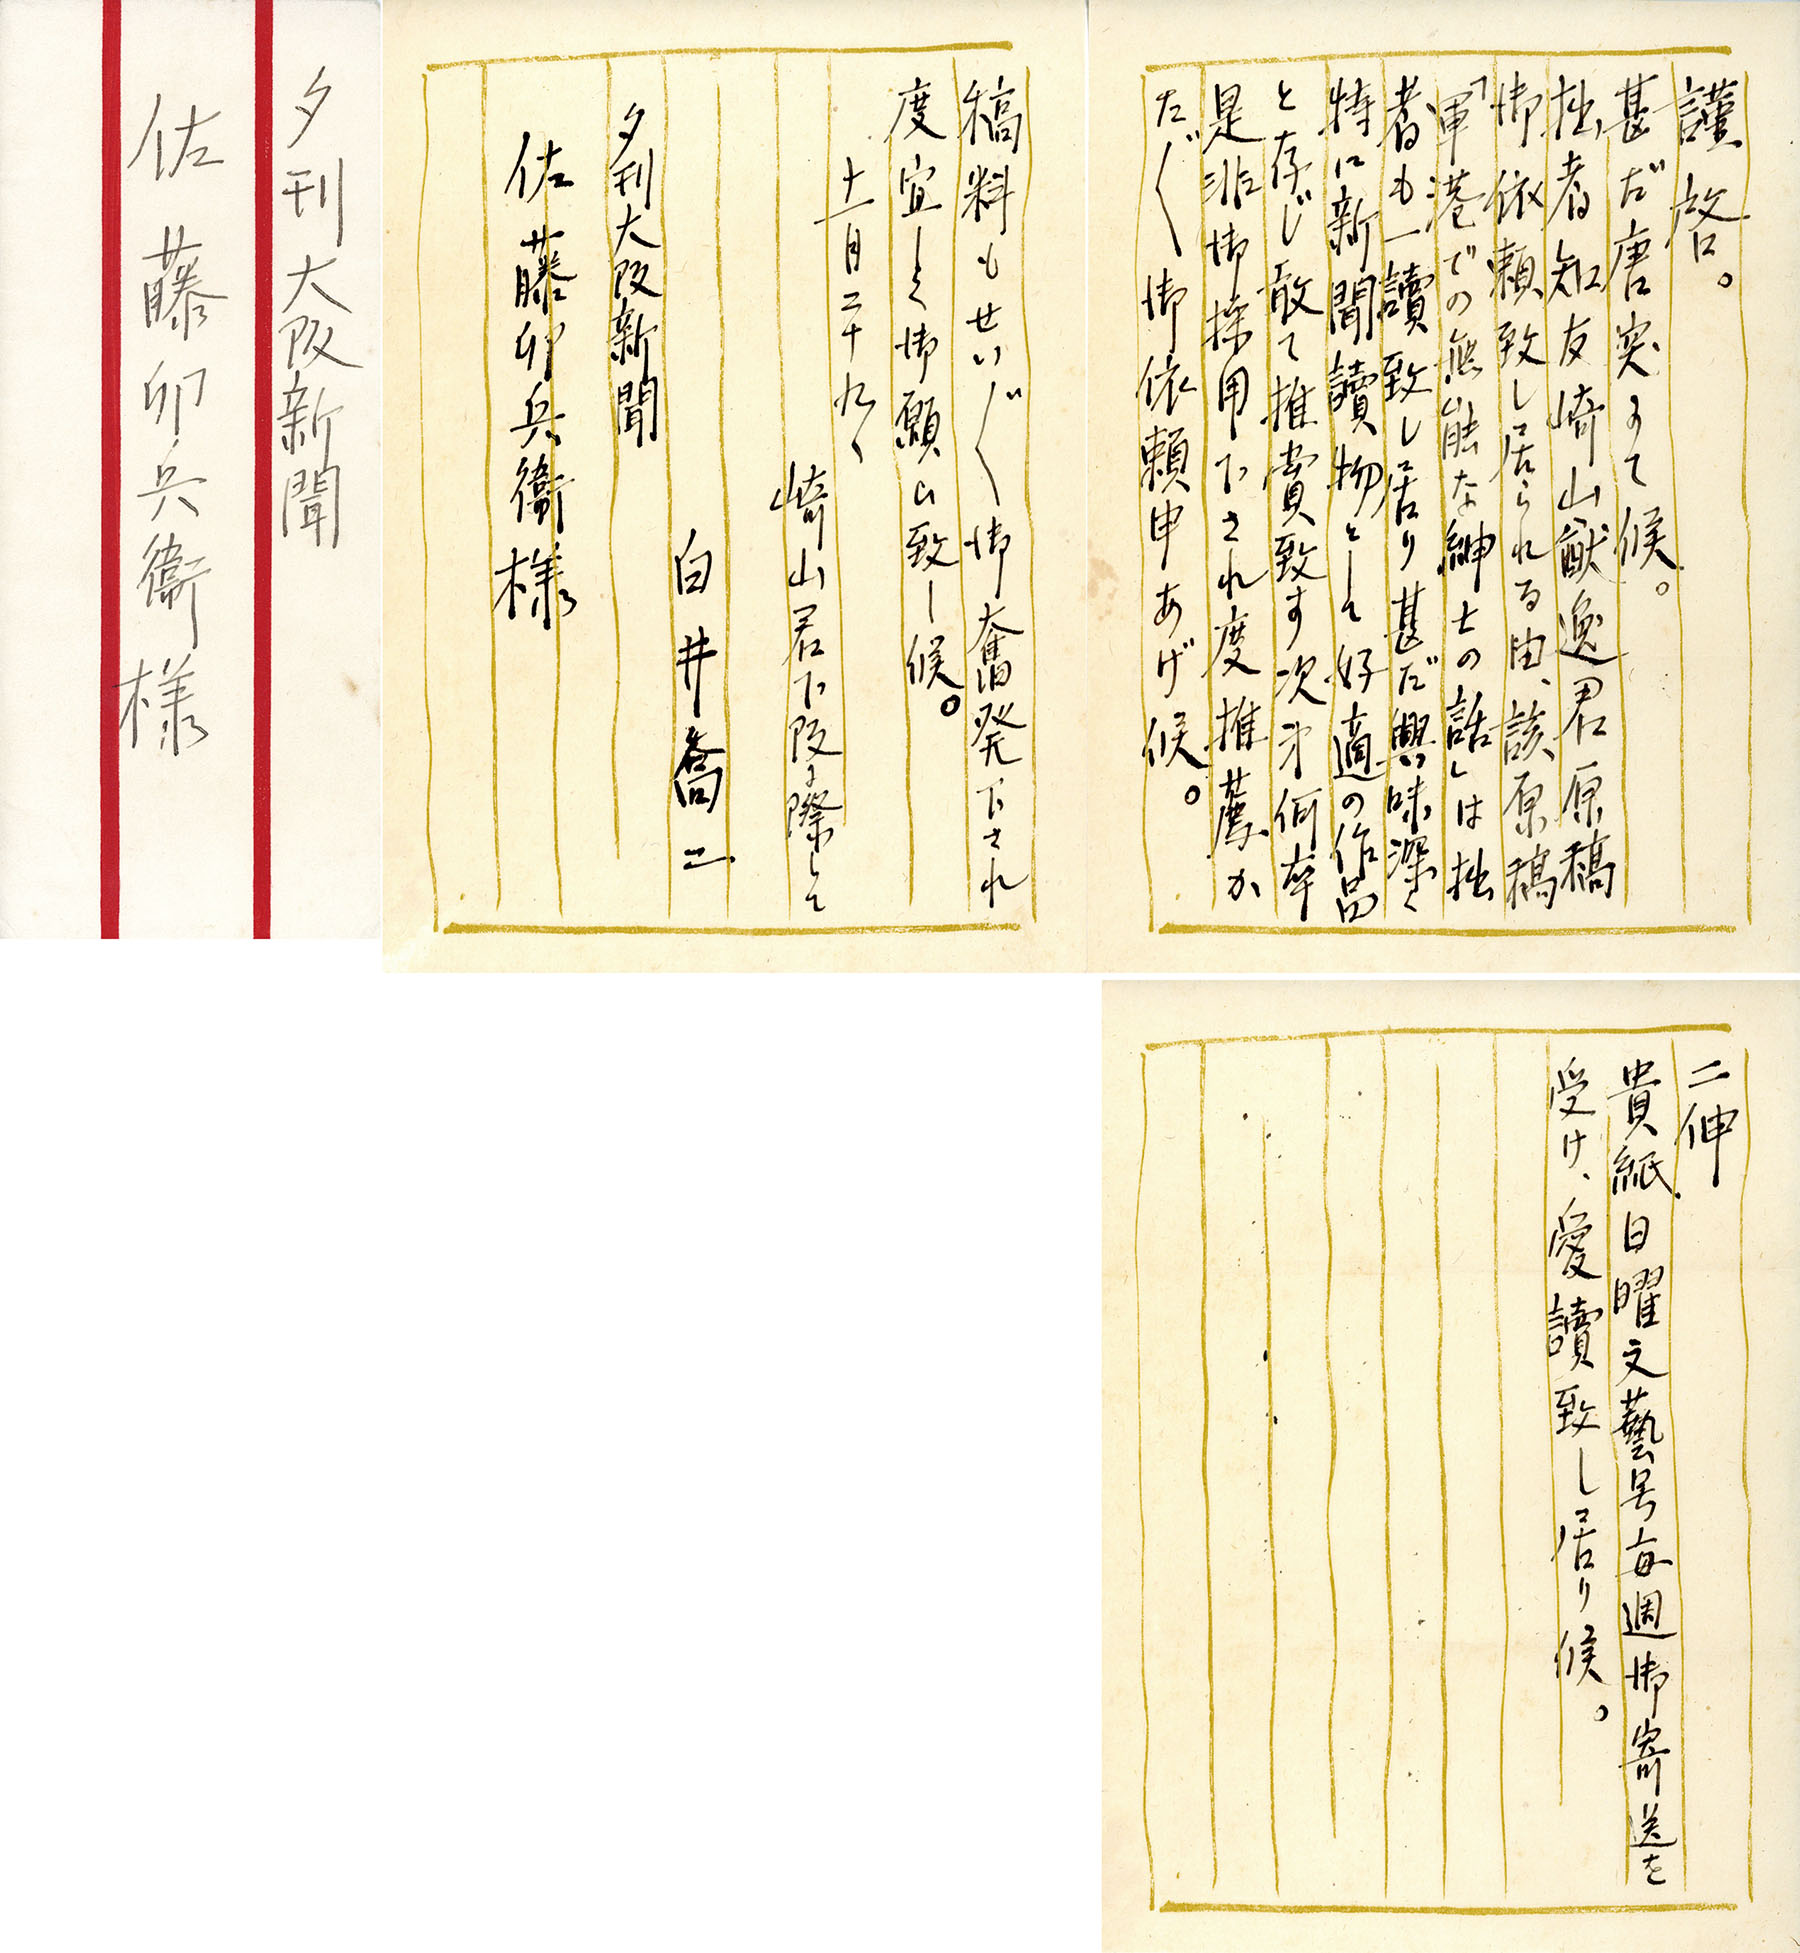 夕刊大阪新聞
佐藤卯兵衞様
謹啓。
甚だ唐突にて候。
拙者知友崎山猷逸君原稿
御依頼致し居られる由、該原稿
「軍港での無能な紳士の話」は拙
者も一讀致し居り甚だ興味深く
特に新聞讀物として好適の作品
と存じ敢て推賞致す次才何卒
是非御採用下され度推薦か
た〴〵御依頼申あげ候。
稿料もせい〴〵御奮発下され
度宜しく御願ひ致し候。
十一月二十九日
崎山君下阪に際して
白井喬二
夕刊大阪新聞
佐藤卯兵衞様
二伸
貴紙日曜文藝号毎週御寄送を
受け、愛讀致し居り候。